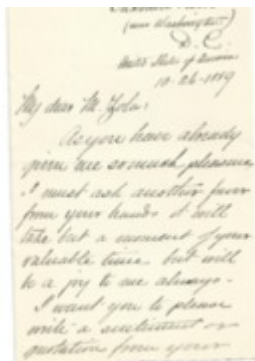 (near Washington)
D. C.
United States of America
10-26-1889
My dear M. Zola:
As you have already
given me so much pleasure
I must ask another favor
from your hands it will
take but a moment of your
valuable time but will
be a joy to me always.
I want you to please
write a sentiment or
quotation from your